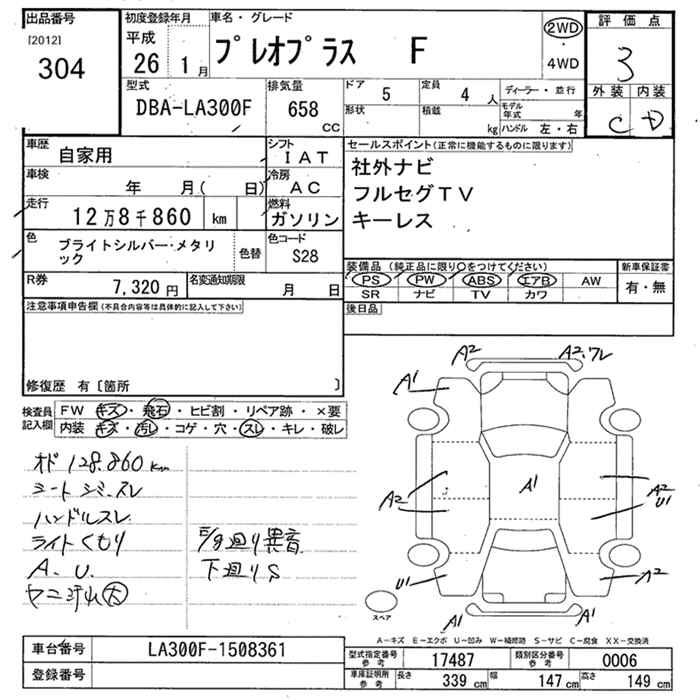 出品番号
[2012]
304
初度登録年月
平成
26 1月
車名・グレード
プレオプラス F
2WD
・
4WD
評価点
3
外装 内装
C D
型式
DBA-LA300F
排気量
658
CC
ドア 5
定員 4 人
形状
積載 kg
ディーラー・並行
モデル年式 年
ハンドル 左・右
車歴
自家用
シフト
IAT
車検
年 月( 日)
冷房
AC
走行
12万8千860 km
燃料
ガソリン
色
ブライトシルバー・メタリック
色替
色コード
S28
R券
7,320円
名変通知期限
月 日
セールスポイント(正常に機能するものに限ります)
社外ナビ
フルセグTV
キーレス
装備品 (純正品に限り○をつけてください)
PS PW ABS エアB AW
SR ナビ TV カワ
新車保証書
有・無
後日品
注意事項申告欄(不具合内容等は具体的に記入して下さい)
修復歴 有〔箇所 〕
検査員記入欄
FW キズ・飛石・ヒビ割・リペア跡・×要
内装 キズ・汚レ・コゲ・穴・スレ・キレ・破レ
オド 128.860km
シート シミ・スレ
ハンドルスレ
ライトくもり
A. U.
ヤニ汚れ 大
E/g廻り異音
下廻りS
A2
A2.ワレ
A1
A1
A2
A1
A2
U1
U1
A2
A1
A1
スペア
A-キズ E-エクボ U-凹み W-補修跡 S-サビ C-腐食 XX-交換済
車台番号
LA300F-1508361
登録番号
型式指定番号 参考
17487
類別区分番号 参考
0006
車庫証明所 参考
長さ 339 cm
幅 147 cm
高さ 149 cm